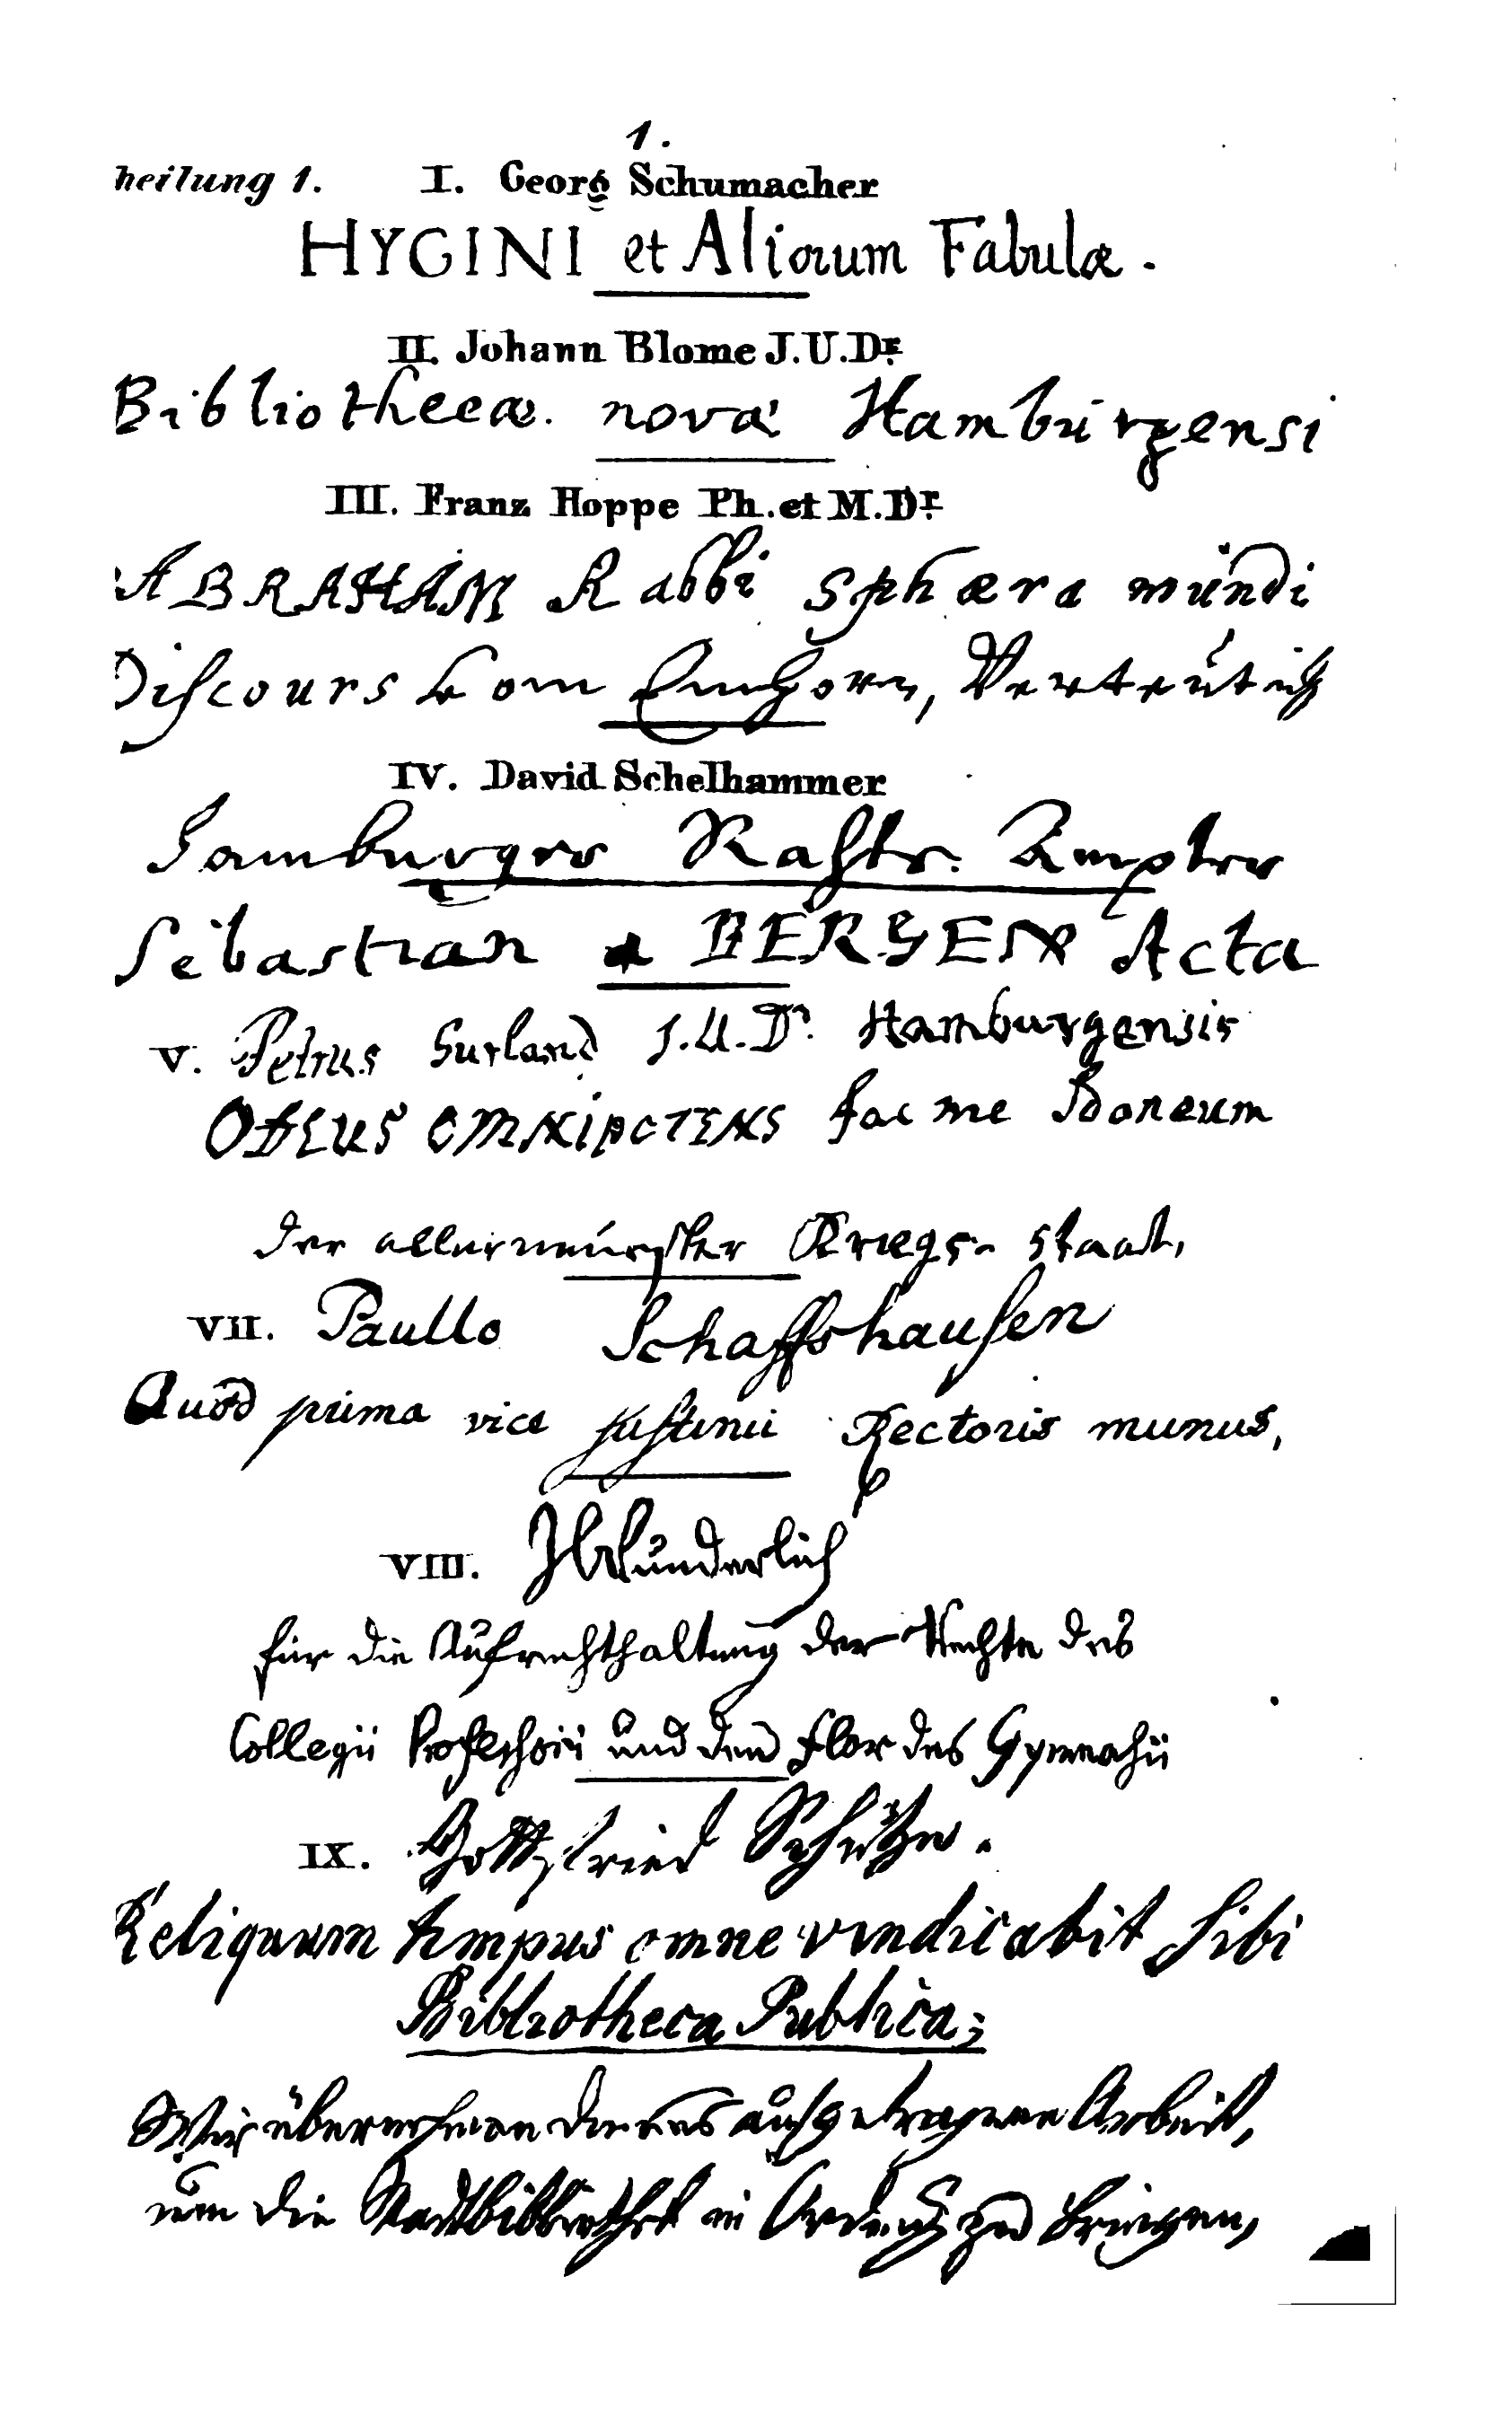 1.
heilung 1. I. Georg Schumacher
HYGINI et Aliorum Fabulæ.
II. Johann Blome J.U.Dr.
Bibliothecæ. novæ Hamburgensi
III. Franz Hoppe Ph. et M.Dr.
ABRAHAM Rabbi sphæra mundi
Discours vom Einhorn, Verteutsch
IV. David Schelhammer
Hamburger Rahts. Ämpter
Sebastian a BERGEN Acta
V. Petrus Surland J.U.Dr. Hamburgensis
O DEUS OMNIPOTENS fac me Idoneum
Der allerneüester Kriegs- Staat,
VII. Paullo Schaffshausen
Quod prima vice sustinui Rectoris munus,
VIII. JWunderlich
für die Aufrechthaltung der Rechte des
Collegii Professorii und den Flor des Gymnasii
IX. Gottfried Schütze.
Reliquum tempus omne vindicabit sibi
Bibliotheca Publica;
Wir übernehmen die uns aufgetragene Arbeit,
um die Stadtbibliothek in Ordnung zu bringen,